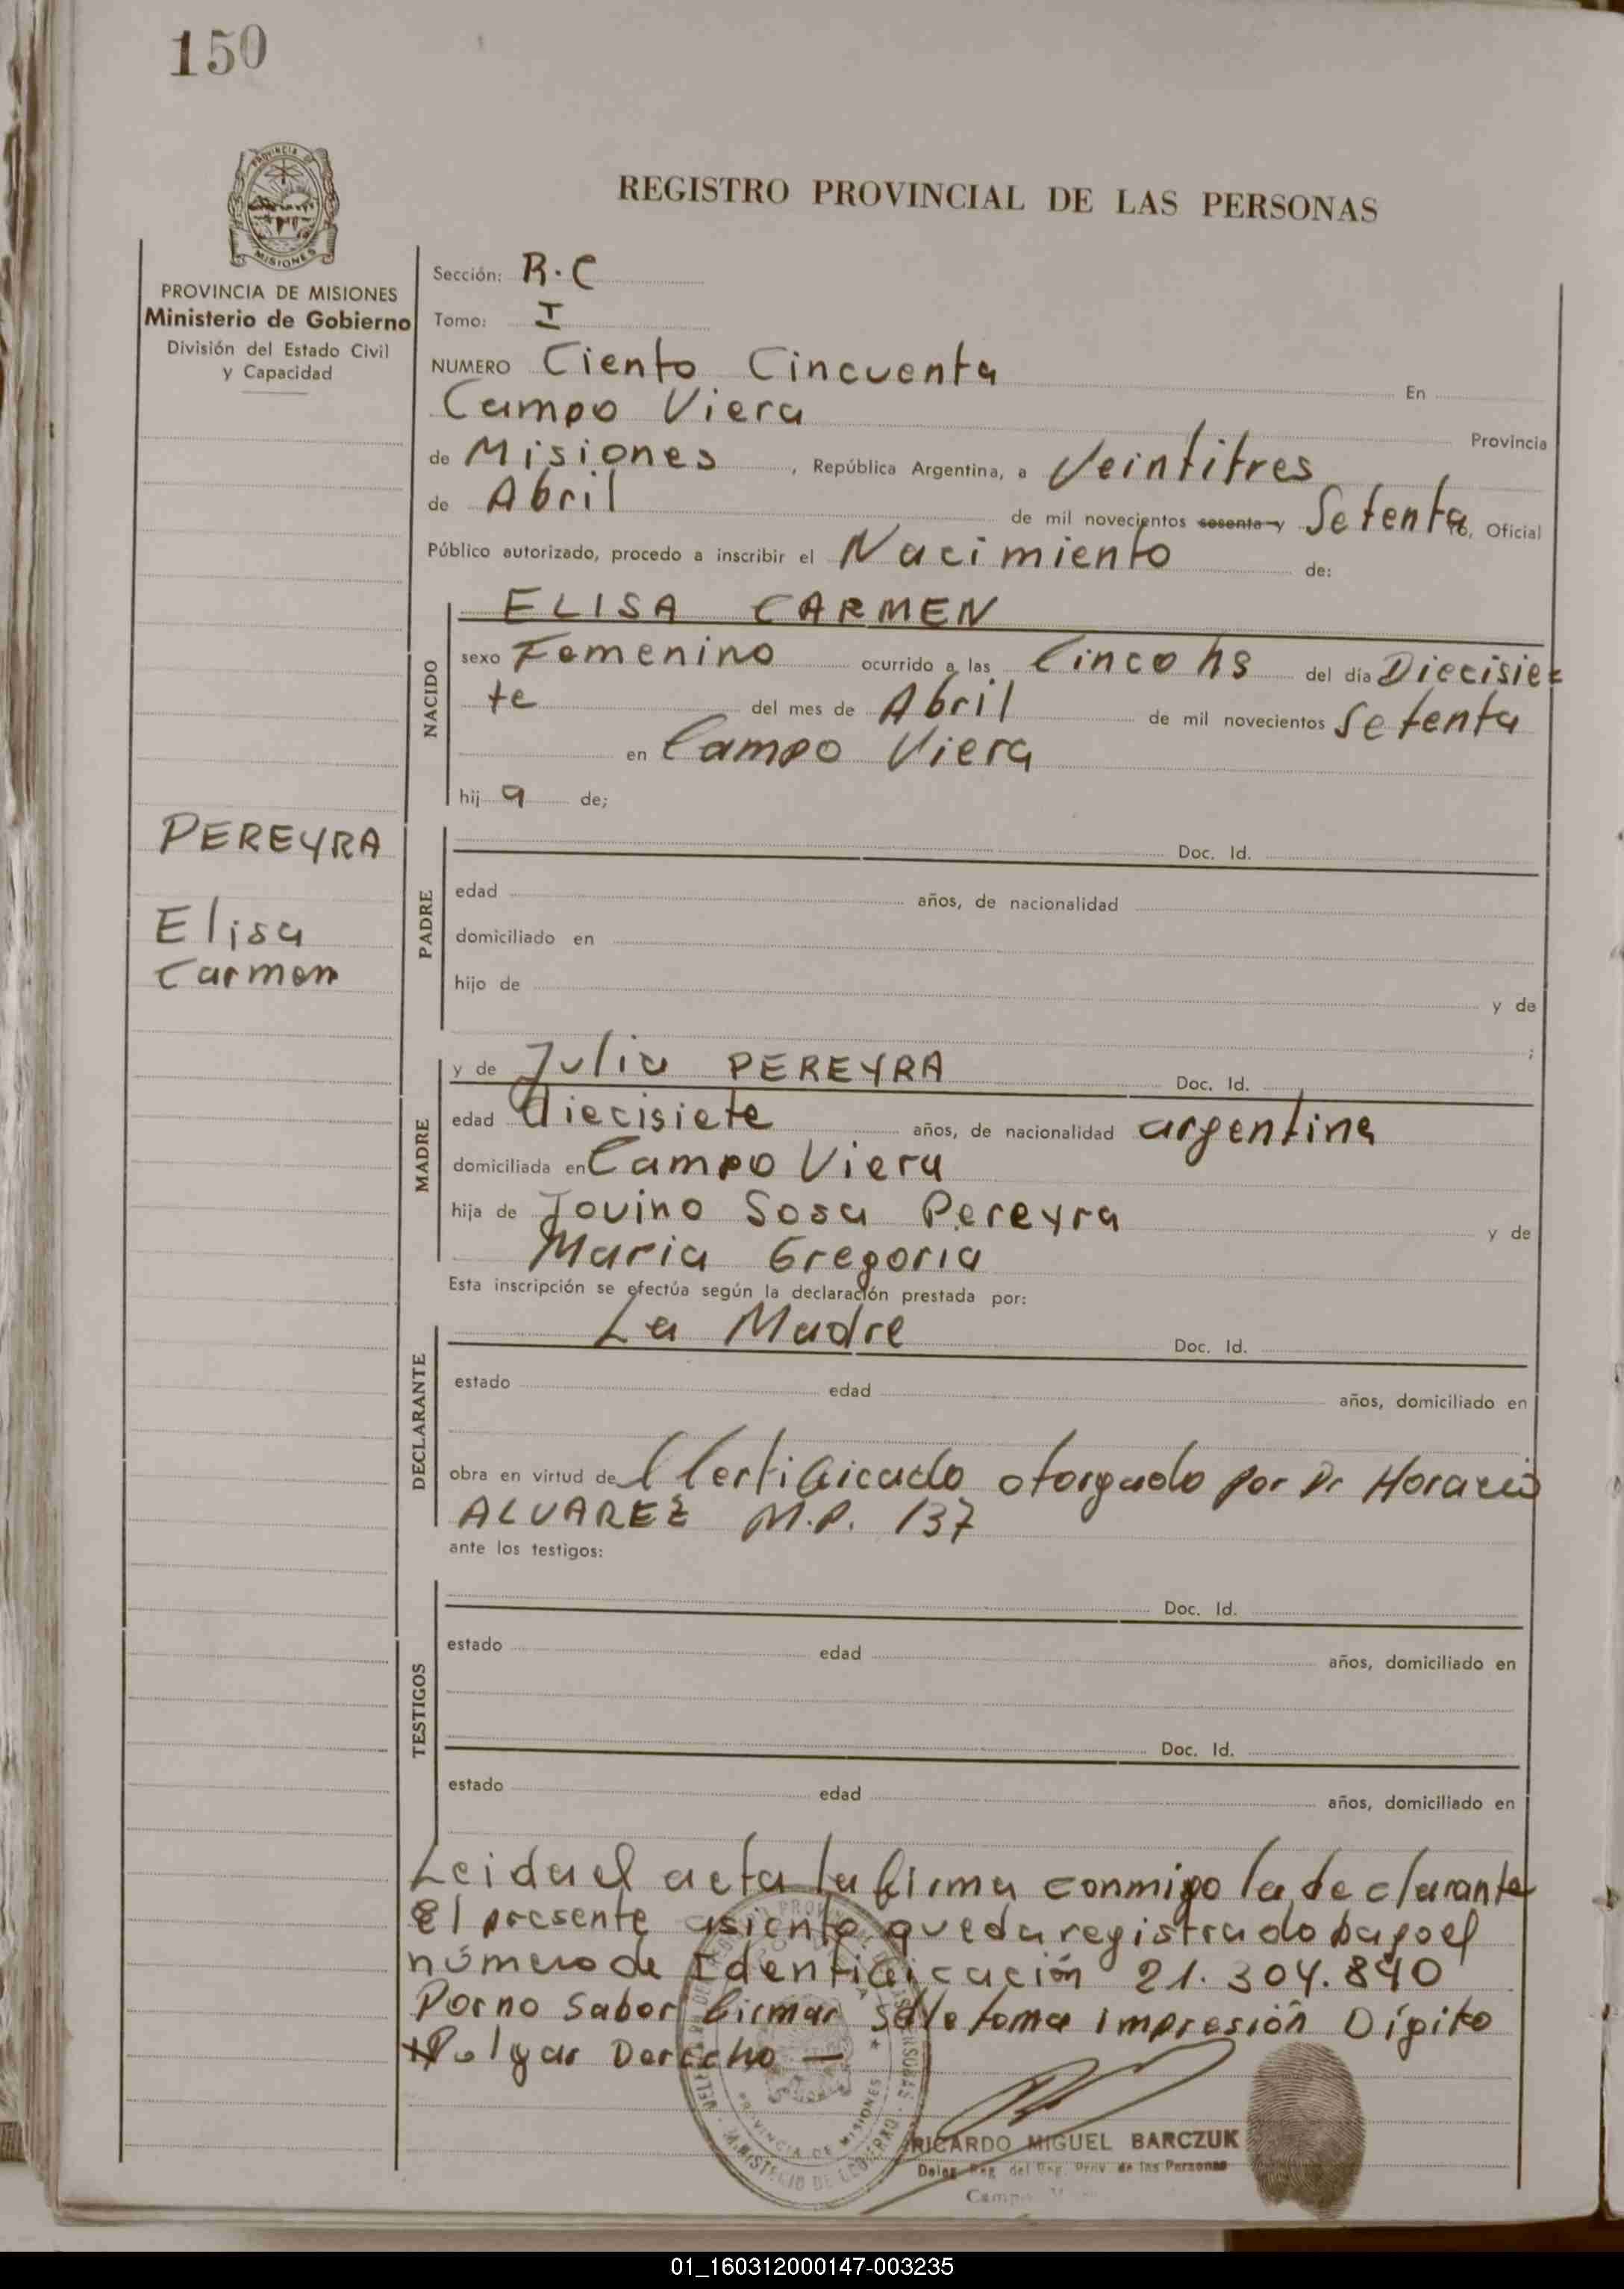 150
PROVINCIA DE
MISIONES
REGISTRO PROVINCIAL DE LAS PERSONAS
PROVINCIA DE MISIONES
Ministerio de Gobierno
División del Estado Civil
y Capacidad
Sección: R.C
Tomo: I
NUMERO Ciento Cincuenta En
Campo Viera Provincia
de Misiones, República Argentina, a Veintitres
de Abril de mil novecientos sesenta y Setenta, Oficial
Público autorizado, procedo a inscribir el Nacimiento de:
NACIDO
ELISA CARMEN
sexo Femenino ocurrido a las Cinco hs del día Diecisie=
te del mes de Abril de mil novecientos Setenta
en Campo Viera
hij a de;
PEREYRA
Elisa
Carmen
PADRE
Doc. Id.
edad años, de nacionalidad
domiciliado en
hijo de y de
;
MADRE
y de Julia PEREYRA Doc. Id.
edad diecisiete años, de nacionalidad argentina
domiciliada en Campo Viera
hija de Jovino Sosa Pereyra y de
Maria Gregoria
Esta inscripción se efectúa según la declaración prestada por:
DECLARANTE
La Madre Doc. Id.
estado edad años, domiciliado en
obra en virtud de Certificado otorgado por Dr Horacio
ALVAREZ M.P. 137
ante los testigos:
TESTIGOS
Doc. Id.
estado edad años, domiciliado en
Doc. Id.
estado edad años, domiciliado en
Leida el acta la firma conmigo la declarante
El presente asiento queda registrado bajo el
número de Identificación 21.304.840
Por no sabor firmar se le toma impresión Dígito
Pulgar Derecho —
PROVINCIA DE MISIONES
MINISTERIO DE GOBIERNO
RICARDO MIGUEL BARCZUK
Deleg. Reg. del Reg. Prov. de las Personas
Campo
01_160312000147-003235